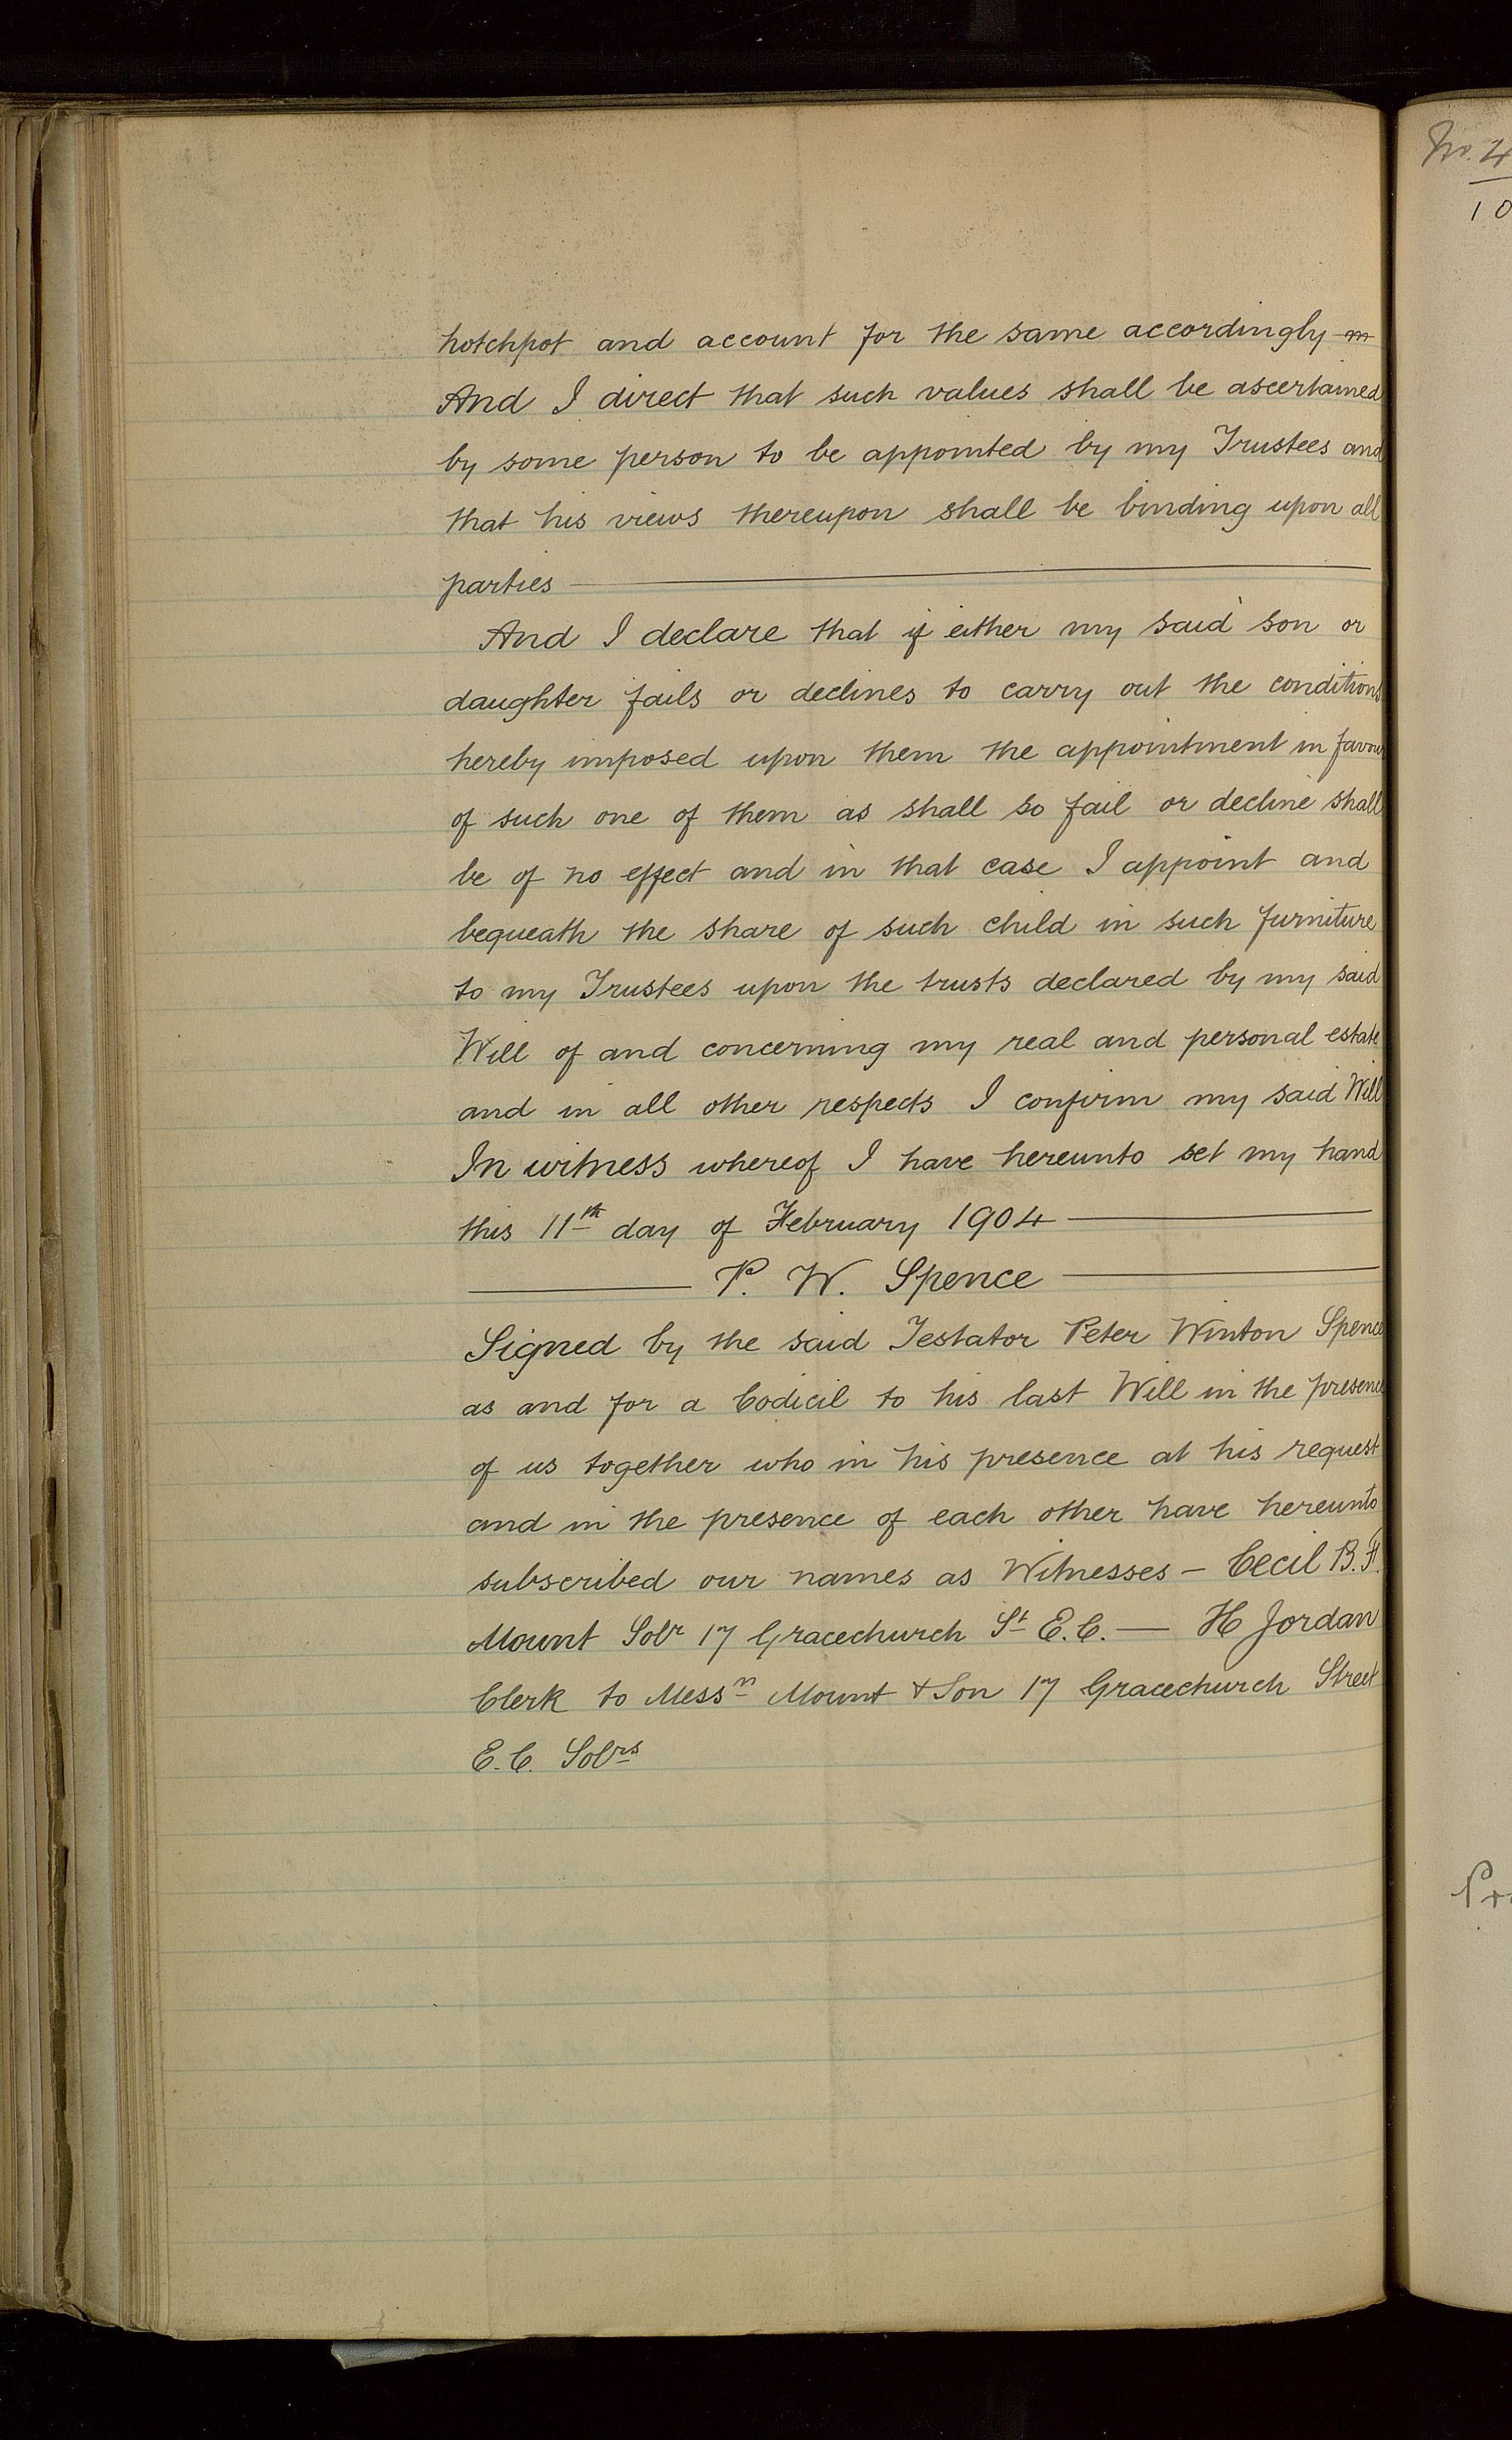 hotchpot and account for the same accordingly
And I direct that such values shall be ascertained
by some person to be appointed by my Trustees and
that his views thereupon shall be binding upon all
parties
And I declare that if either my said son or
daughter fails or declines to carry out the conditions
hereby imposed upon them the appointment in favour
of such one of them as shall so fail or decline shall
be of no effect and in that case I appoint and
bequeath the share of such child in such furniture
to my Trustees upon the trusts declared by my said
Will of and concerning my real and personal estate
and in all other respects I confirm my said Will
In witness whereof I have hereunto set my hand
this 11th day of February 1904
P. W. Spence
Signed by the said Testator Peter Winton Spence
as and for a Codicil to his last Will in the presence
of us together who in his presence at his request
and in the presence of each other have hereunto
subscribed our names as Witnesses – Cecil B. F.
Mount Solr 17 Gracechurch St E.C. — H Jordan
Clerk to Messrs Mount & Son 17 Gracechurch Street
E.C. Solrs
No. 4
10